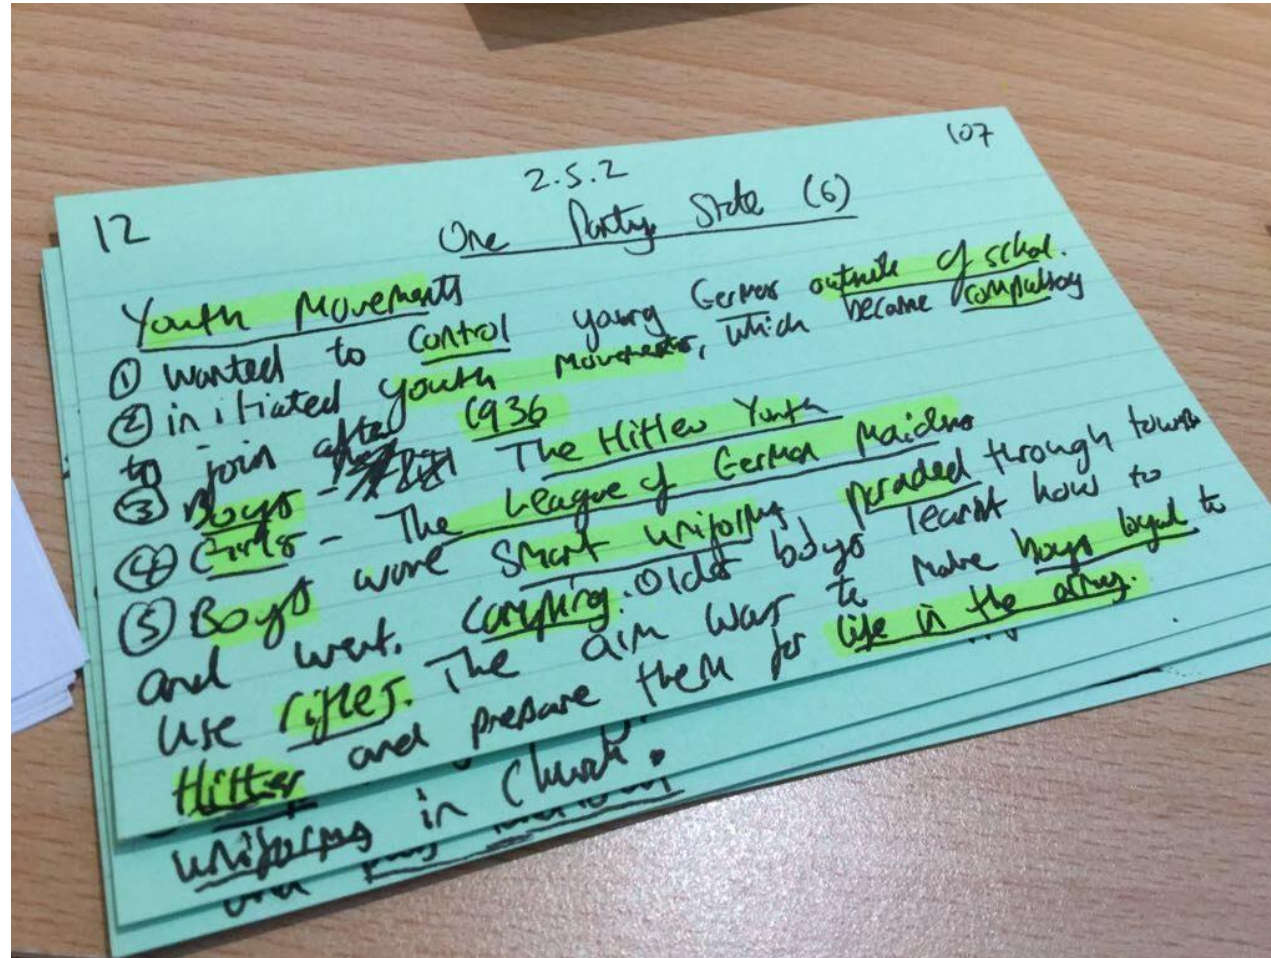 107
2.5.2
12
One Party State (6)
Youth Movements
① wanted to control young Germans outside of school.
② initiated youth movements, which became compulsory
to join after 1936
③ Boys - The Hitler Youth
④ Girls - The League of German Maidens
⑤ Boys wore smart uniforms, paraded through towns
and went camping. Older boys learnt how to
use rifles. The aim was to make boys loyal to
Hitler and prepare them for life in the army.
uniforms in church.
and